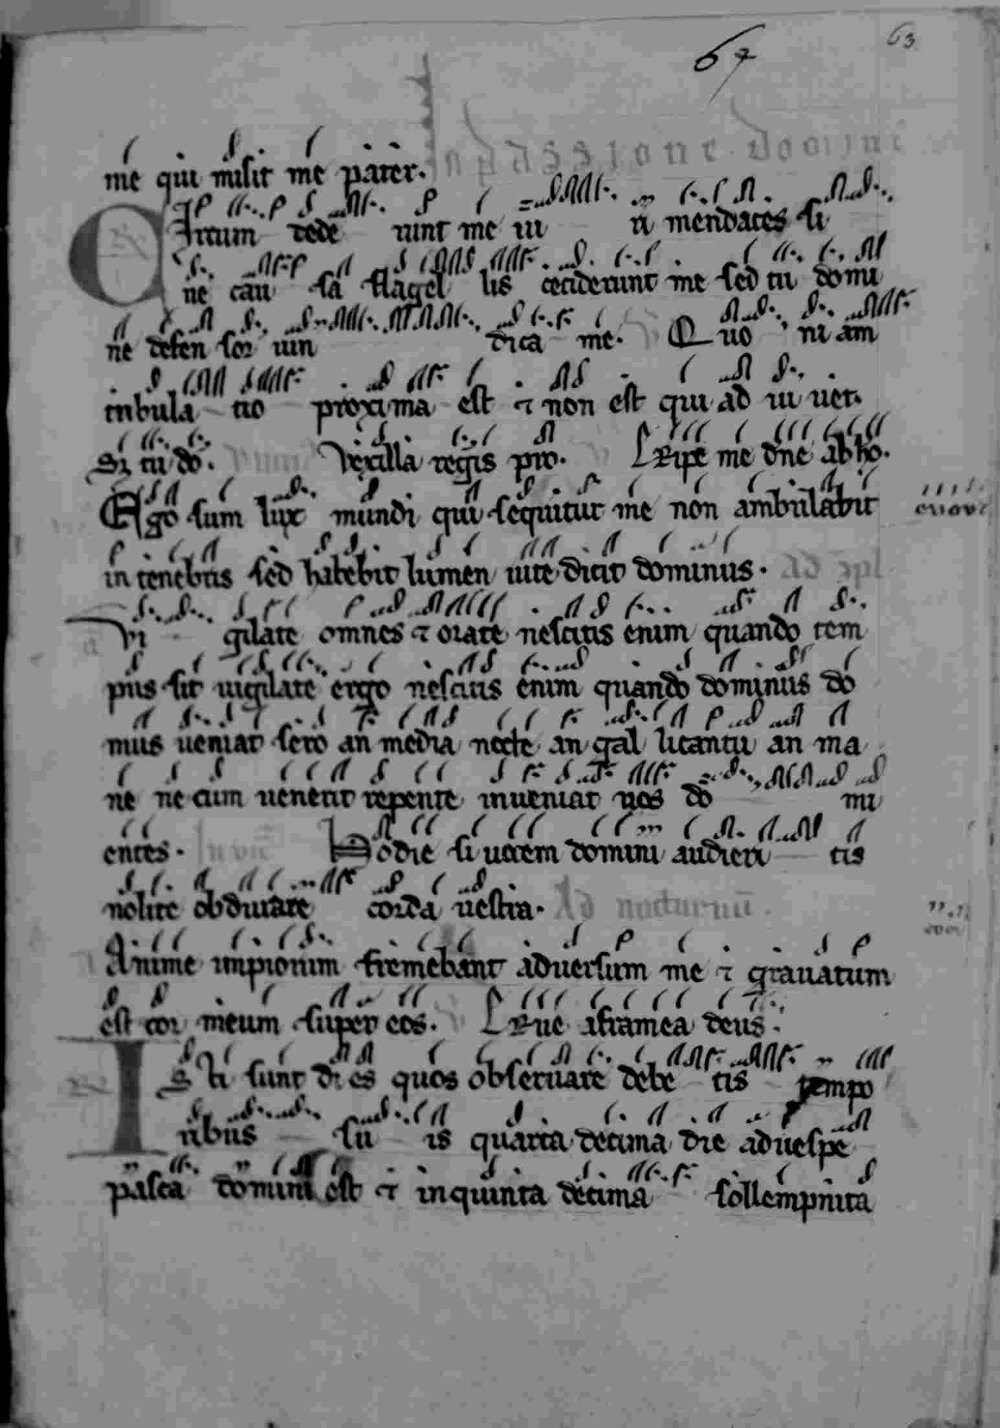 67 63
me qui misit me pater. In passione domini
Circum dede runt me ui ri mendaces si
ne cau sa flagel lis ceciderunt me sed tu domi
ne defen sor uin dica me. Quo ni am
tribula tio proxima est ⁊ non est qui ad iu uet.
Sʒ tu do. Vexilla regis pro. Eripe me dne ab ho.
Ego sum lux mundi qui sequitur me non ambulabit euouae
in tenebris sed habebit lumen uite dicit dominus. Ad
Vi gilate omnes ⁊ orate nescitis enim quando tem
pus sit uigilate ergo nescitis enim quando dominus do
mus ueniat sero an media nocte an gal licantu an ma
ne ne cum uenerit repente inueniat uos do mi
entes. Hodie si uocem domini audieri tis
nolite obdurare corda uestra. Ad nocturnū.
Anime impiorum fremebant aduersum me ⁊ grauatum
est cor meum super eos. Erue a framea deus.
Isti sunt di es quos obseruare debe tis tempo
ribus su is quarta decima die aduespe
pasca domini est ⁊ in quinta decima sollempnita